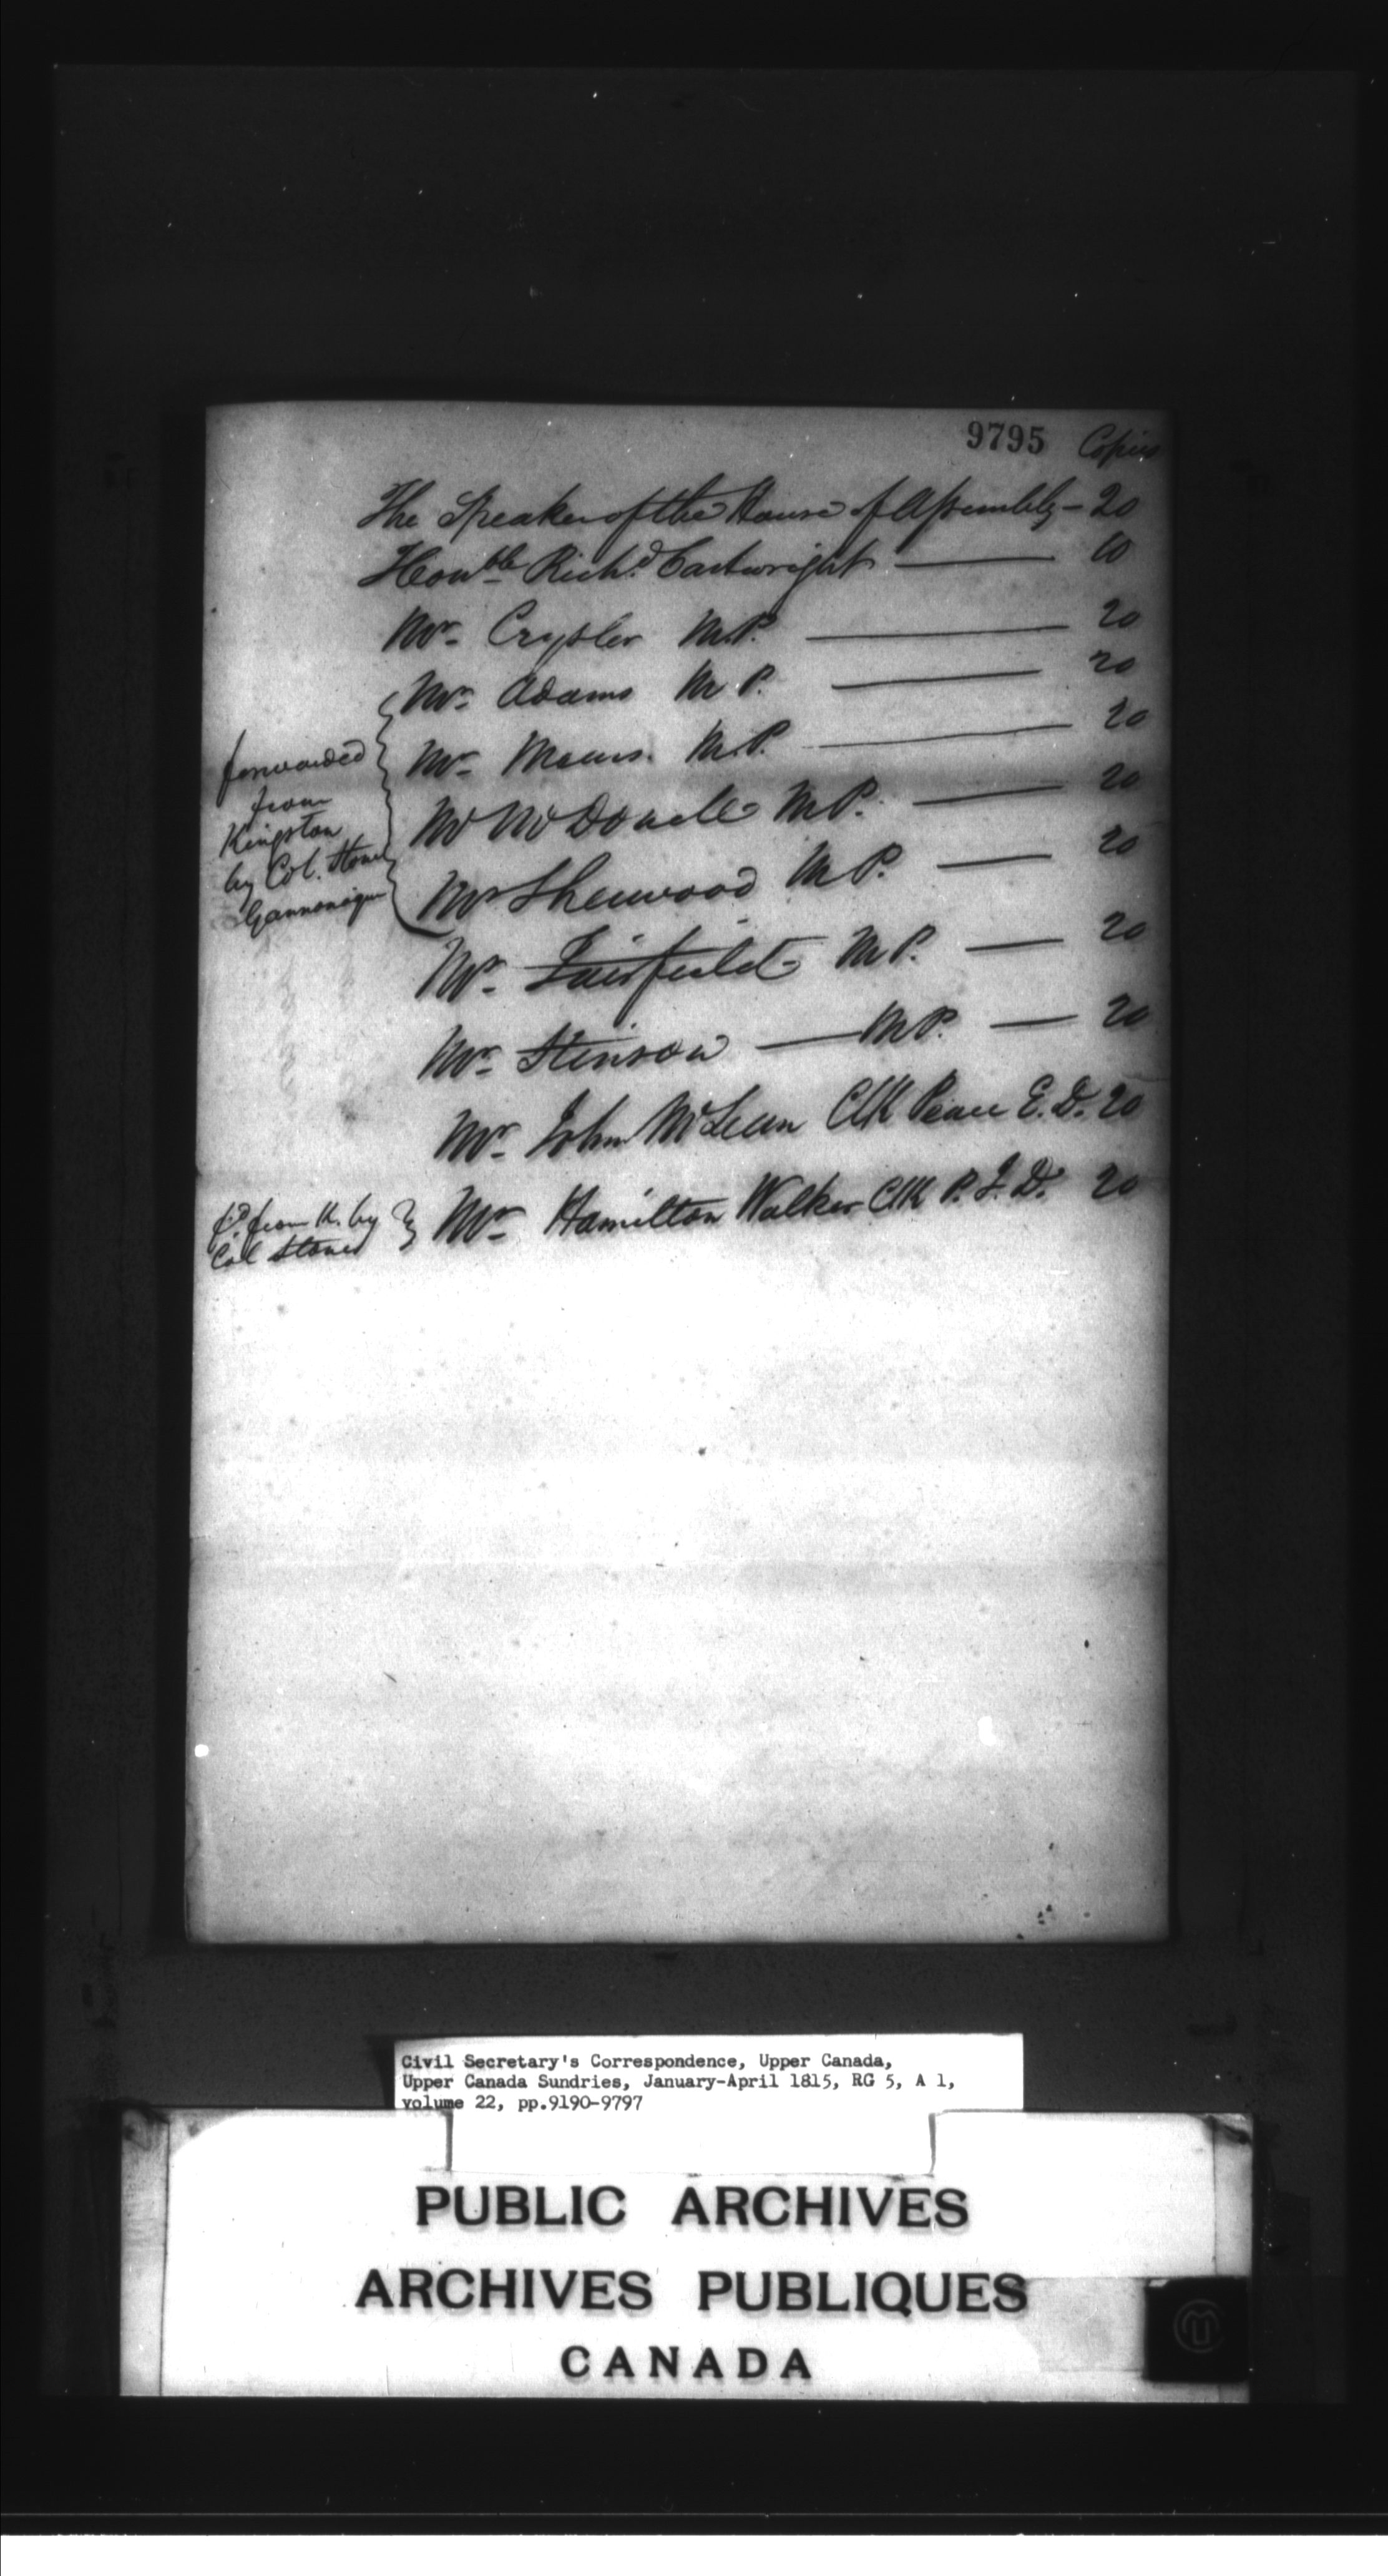 9795 Copies
The Speaker of the House of Assembly - 20
Hon<sup>ble</sup> Rich<sup>d</sup> Cartwright — 10
Mr. Crysler M.P. — 20
Mr. Adams M P. — 20
Mr. M.P. — 20
Mr McDonell M.P. — 20
Mr Sherwood M.P. — 20
forwarded
from
Kingston
by Col. Stone
Gannonique
Mr. Fairfield M.P. — 20
Mr. Stinson — M.P. — 20
Mr. John McLean Clk Peace E. D. 20
Mr. Hamilton Walker Clk P. J. D. 20
fd from K. by
Col Stone
Civil Secretary's Correspondence, Upper Canada,
Upper Canada Sundries, January-April 1815, RG 5, A 1,
volume 22, pp.9190-9797
PUBLIC ARCHIVES
ARCHIVES PUBLIQUES
CANADA